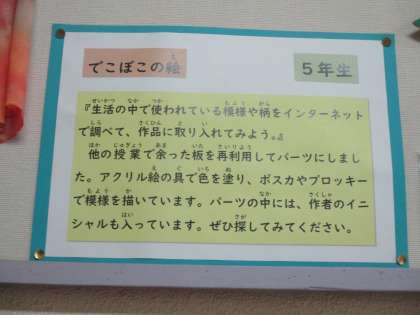 でこぼこの絵
5年生
『生活の中で使われている模様や柄をインターネット
で調べて、作品に取り入れてみよう。』
他の授業で余った板を再利用してパーツにしまし
た。アクリル絵の具で色を塗り、ポスカやプロッキー
で模様を描いています。パーツの中には、作者のイニ
シャルも入っています。ぜひ探してみてください。